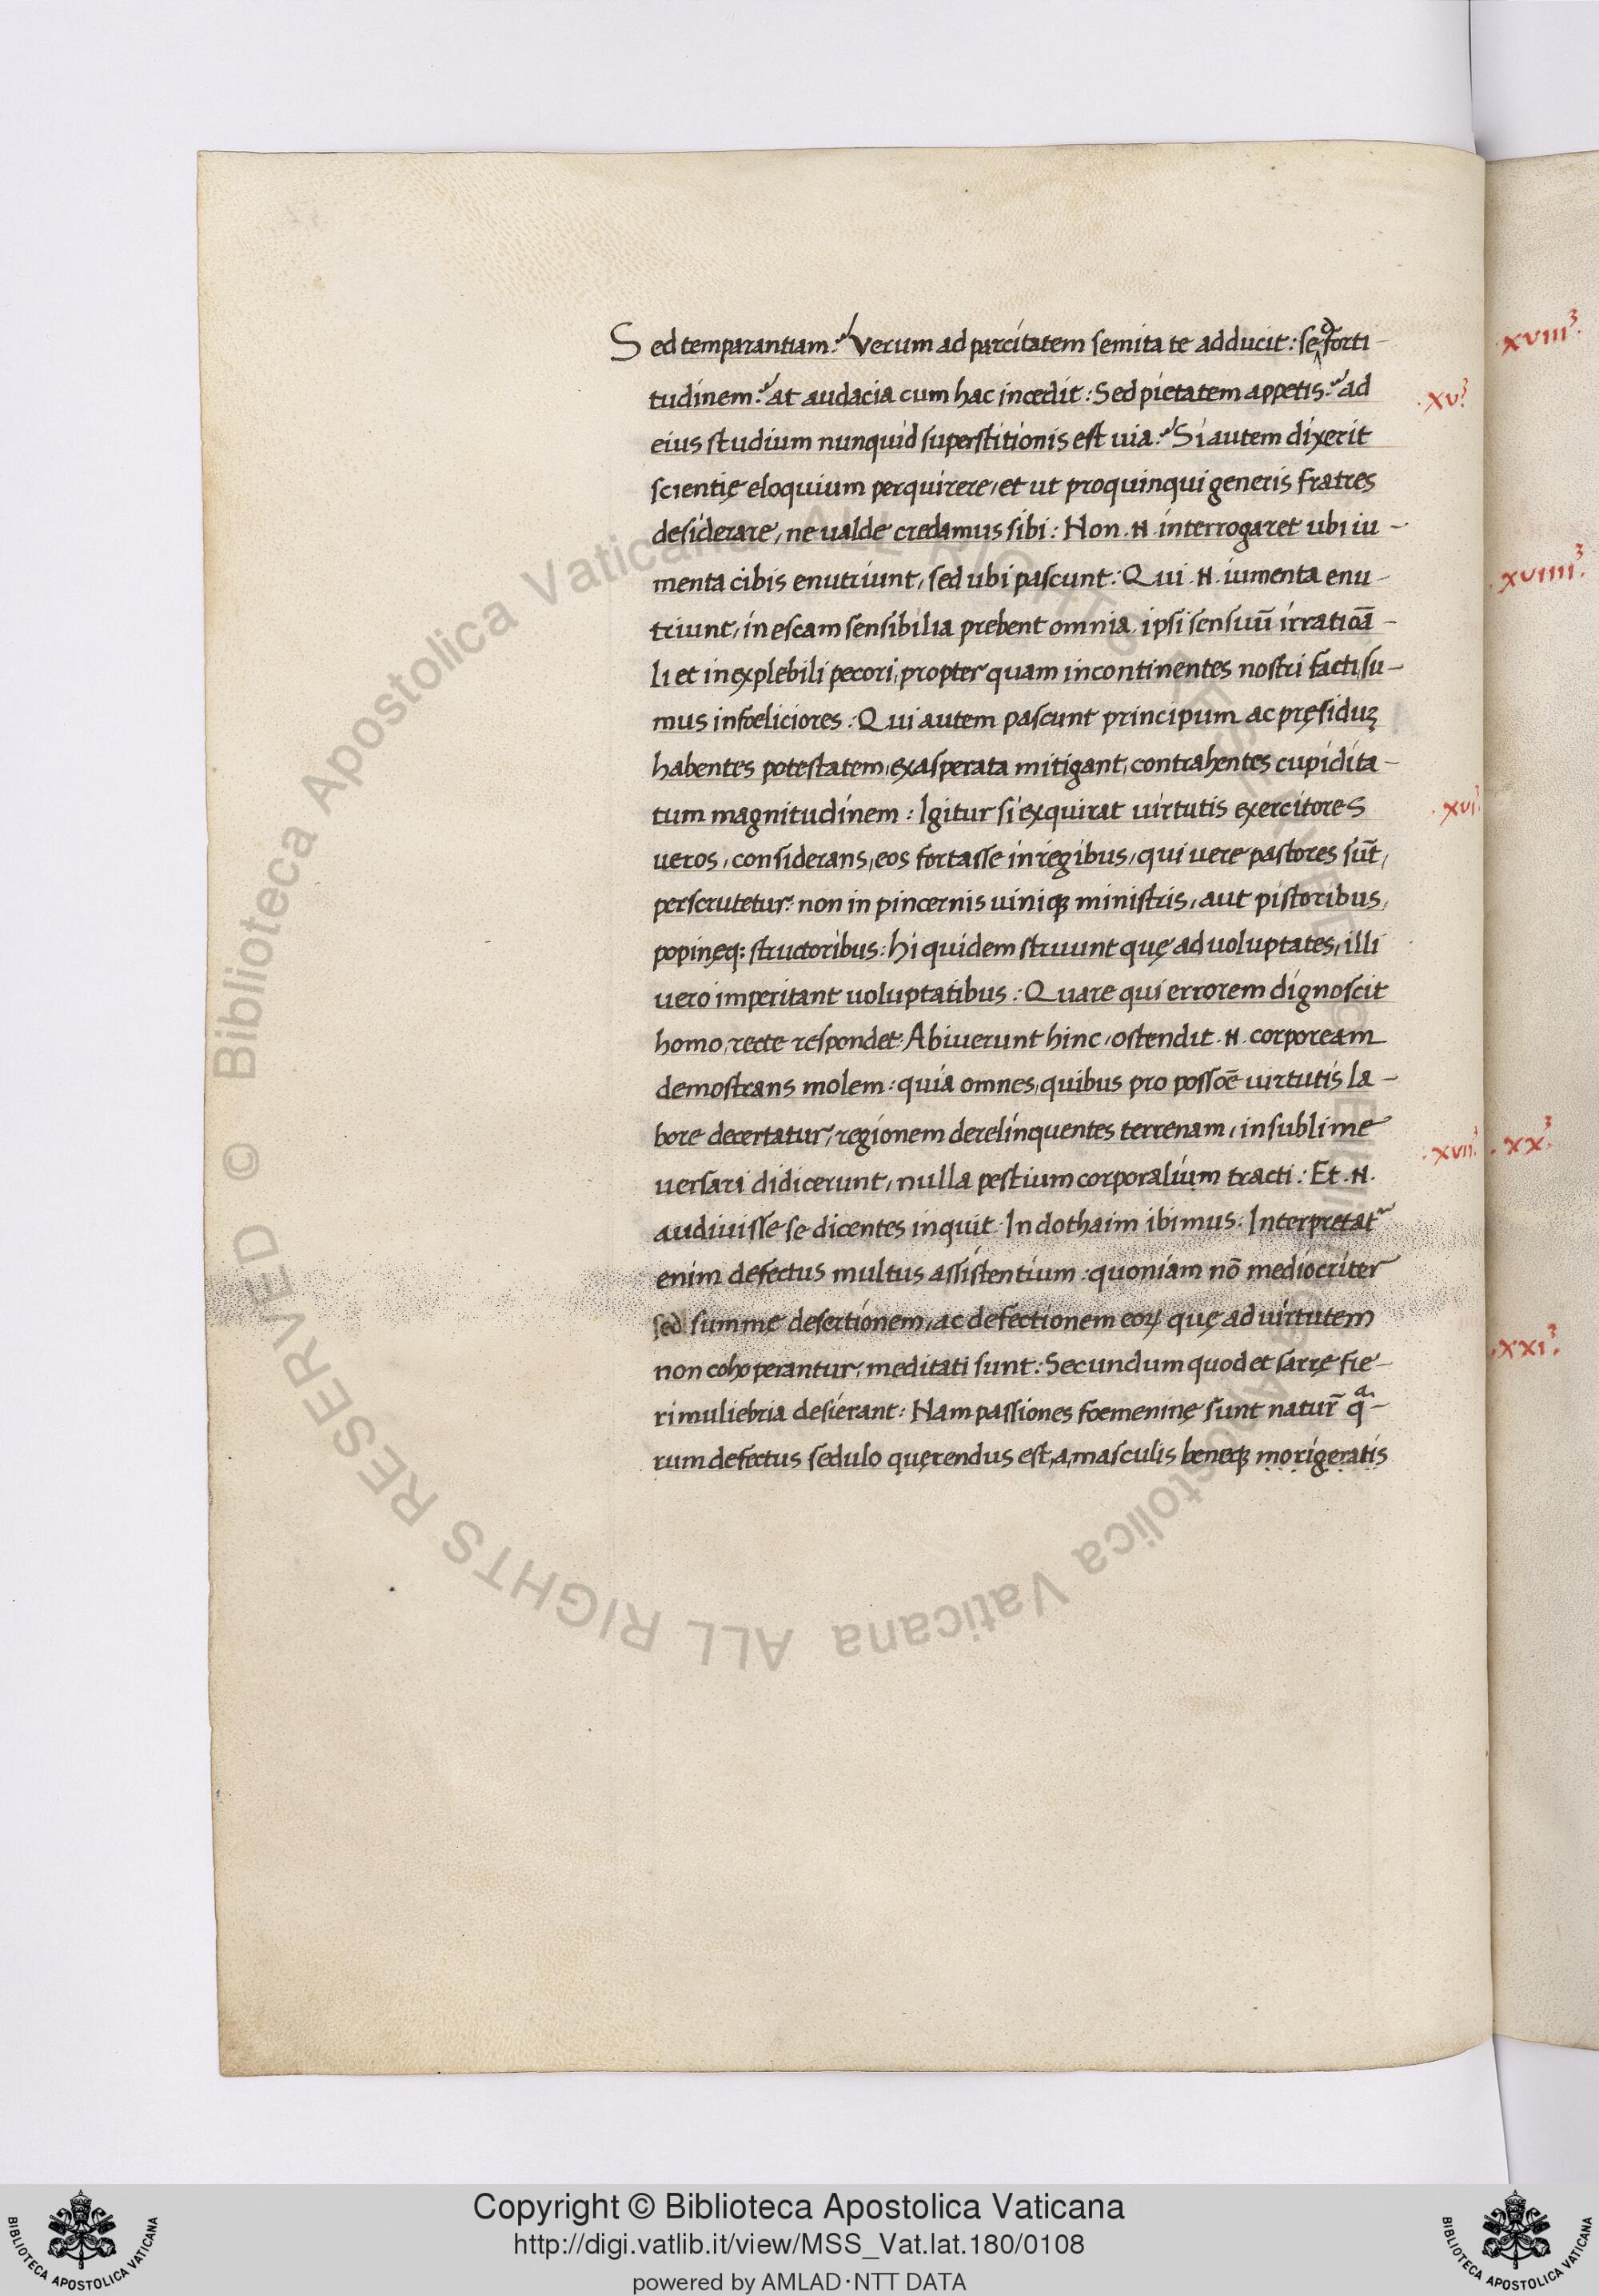 Sed temparantiam? Verum ad parcitatem semita te adducit: sed forti-
tudinem? at audacia cum hac incedit: Sed pietatem appetis? ad
eius studium nunquid superstitionis est uia? Si autem dixerit
scientię eloquium perquirere, et ut proquinqui generis fratres
desiderare, ne ualde credamus sibi: Non .N. interrogaret ubi iu-
menta cibis enutriunt, sed ubi pascunt: Qui .N. iumenta enu-
triunt, in escam sensibilia prebent omnia, ipsi sensuū irratiōā-
li et inexplebili pecori, propter quam incontinentes nostri facti su-
mus infoeliciores: Qui autem pascunt principum ac pręsiduꝫ
habentes potestatem, exasperata mitigant, contrahentes cupidita-
tum magnitudinem: Igitur si exquirat uirtutis exercitores
ueros, considerans, eos fortasse in regibus, qui uere pastores sūt,
perscrutetur: non in pincernis uiniqꝫ ministris, aut pistoribus,
popinęq: structoribus: hi quidem struunt quę ad uoluptates, illi
uero imperitant uoluptatibus: Quare qui errorem dignoscit
homo, recte respondet: Abiuerunt hinc, ostendit .N. corpoream
demostrans molem: quia omnes, quibus pro possōe uirtutis la-
bore decertatur, regionem derelinquentes terrenam, in sublime
uersari didicerunt, nulla pestium corporalium tracti: Et .N.
audiuisse se dicentes inquit: In dothaim ibimus: Interpretat᷑
enim defectus multus assistentium: quoniam nō mediocriter
sed summe desertionem, ac defectionem eoꝝ quę ad uirtutem
non cohoperantur, meditati sunt: Secundum quod et sarrę fie-
ri muliebria desierant: Nam passiones foemeninę sunt natur̄ qᵃ-
rum defectus sedulo quęrendus est, a, masculis beneqꝫ morigeratis
.xv.³
.xvi.
.xvii.³
.xviii.³
.xviiii.³
.xx.³
.xxi.³
© Biblioteca Apostolica Vaticana ALL RIGHTS RESERVED © Biblioteca Apostolica Vaticana ALL RIGHTS RESERVED
Copyright © Biblioteca Apostolica Vaticana
http://digi.vatlib.it/view/MSS_Vat.lat.180/0108
powered by AMLAD·NTT DATA
BIBLIOTECA APOSTOLICA VATICANA
BIBLIOTECA APOSTOLICA VATICANA